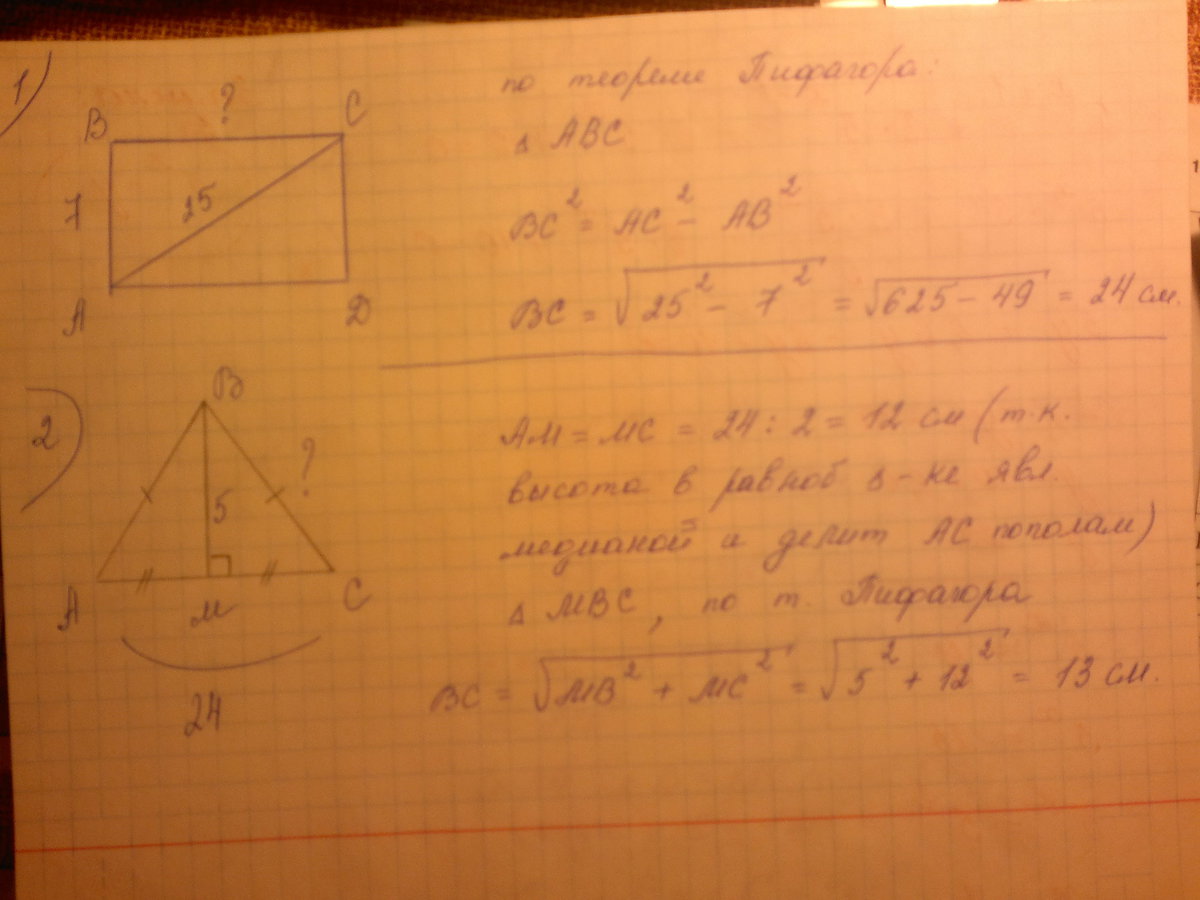 1)
B ? C
7 25
A D
по теореме Пифагора:
Δ ABC
BC² = AC² - AB²
BC = √25² - 7² = √625 - 49 = 24 см.
2)
B
5 ?
A M C
24
AM = MC = 24 : 2 = 12 см (т.к.
высота в равноб Δ-ке явл.
медианой и делит AC пополам)
Δ MBC, по т. Пифагора
BC = √MB² + MC² = √5² + 12² = 13 см.